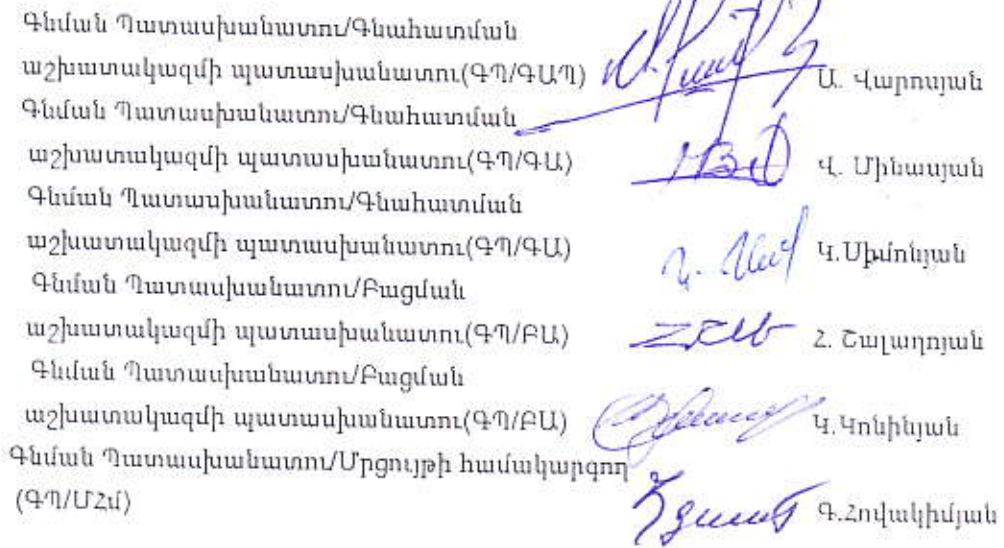 Գնման Պատասխանատու/Գնահատման
աշխատակազմի պատասխանատու(ԳՊ/ԳԱՊ) Ա. Վարոսյան
Գնման Պատասխանատու/Գնահատման
աշխատակազմի պատասխանատու(ԳՊ/ԳԱ) Վ. Մինասյան
Գնման Պատասխանատու/Գնահատման
աշխատակազմի պատասխանատու(ԳՊ/ԳԱ) Կ.Սիմոնյան
Գնման Պատասխանատու/Բացման
աշխատակազմի պատասխանատու(ԳՊ/ԲԱ) Հ. Շալաղոյան
Գնման Պատասխանատու/Բացման
աշխատակազմի պատասխանատու(ԳՊ/ԲԱ) Կ.Կոնինյան
Գնման Պատասխանատու/Մրցույթի համակարգող
(ԳՊ/ՄՀմ) Գ.Հովակիմյան